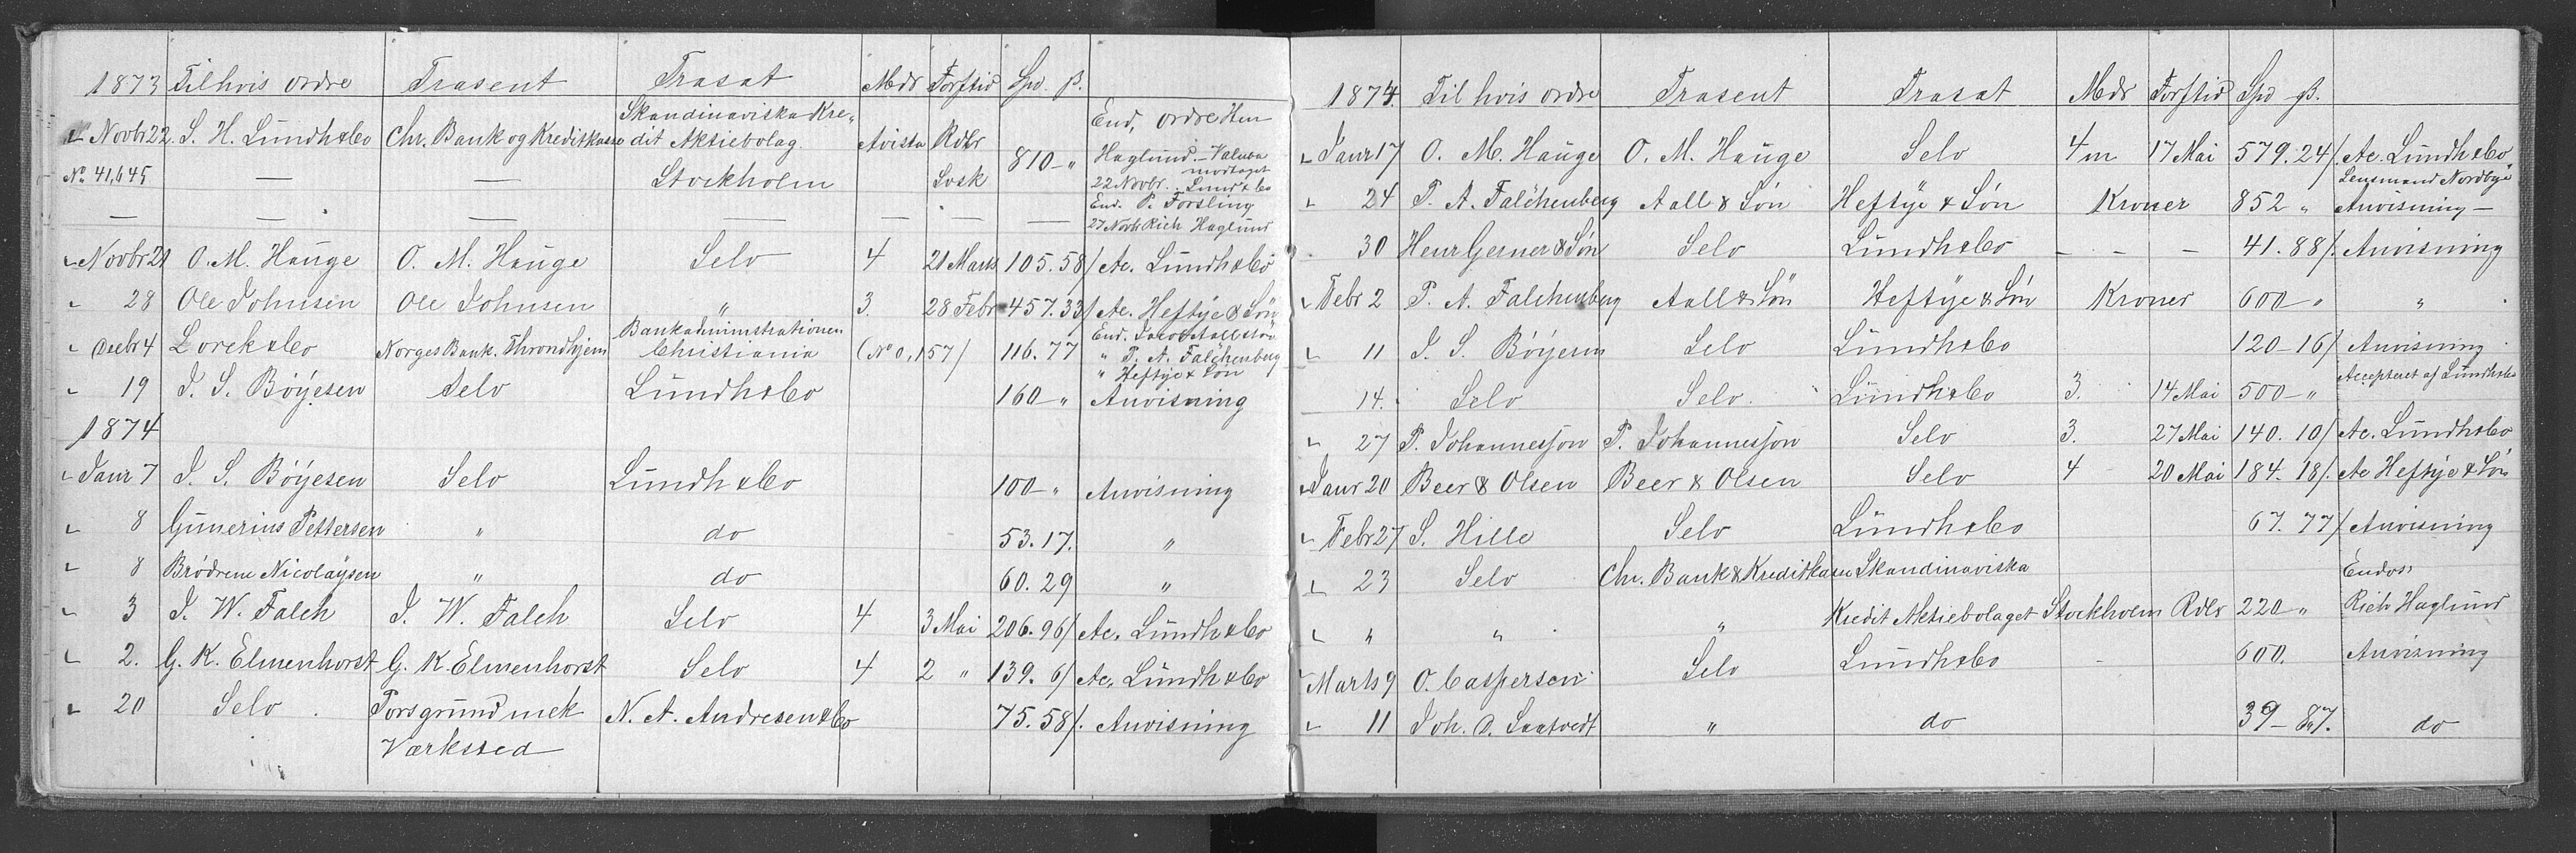 1873 Til hvis ordre Trasent Trasat Mdr Forftid Spd. ß.
Novbr 22. S. H. Lundh & Co Chr. Bank og Kreditkasse Skandinaviska Kre- Avista Rdlr 810 - " End, ordre Hen
dit Aktiebolag. Haglund. - Valuta
No 41,645 — — Stockholm Svsk modtaget
22 Novbr. Lundh & Co
End. P. Forsling
— — — — — — — 27 Novb Rich Haglund
Novbr 21 O. M. Hauge O. M. Hauge Selv 4 21 Marts 105. 58/ Ac. Lundh & Co
" 28 Ole Johnsen Ole Johnsen " 3. 28 Febr 457. 33/ Ac. Heftye & Søn
" Decbr 4 Lorck & Co Norges Bank. Throndhjem Bankadministrationen Christiania (No 0,157) 116. 77 End. Jacob Aall & Søn
" P. A. Falchenberg
" Heftye & Søn
" 19 J. S. Böÿesen Selv Lundh & Co 160 - " Anvisning
1874
Janr 7 J. S. Böÿesen Selv Lundh & Co 100 - " Anvisning
" 8 Gunerius Pettersen " do 53. 17. "
" 8 Brödrene Nicolaÿsen " do 60. 29 "
" 3 J. W. Falch J. W. Falch Selv 4 3 Mai 206. 96/ Ac. Lundh & Co
" 2. G. K. Elmenhorst G. K. Elmenhorst Selv 4 2 " 139. 6/ Ac. Lundh & Co
" 20 Selv Porsgrund mek N. A. Andresen & Co 75. 58/. Anvisning
Værksted
1874. Til hvis ordre Trasent Trasat Mdr Forftid Spd ß.
Janr 17 O. M. Hauge O. M. Hauge Selv 4 m 17 Mai 579. 24/. Ac. Lundh & Co.
Lensmand Nordbye
" 24 P. A. Falchenberg Aall & Søn Heftÿe & Søn Kroner 852 " Anvisning —
" 30 Henr Gerner & Søn Selv Lundh & Co - - - 41. 88/. Anvisning
Febr 2 P. A. Falchenberg Aall & Søn Heftÿe & Søn Kroner 600 " "
" 11 J. S. Böÿesen Selv Lundh & Co 120 - 16/ Anvisning
14. Selv Selv. Lundh & Co 3. 14 Mai 500 - " Accepteret af Lundh & Co
" 27 P. Johannesson P. Johannesson Selv 3. 27 Mai 140. 10/ Ac. Lundh & Co
Janr 20 Beer & Olsen Beer & Olsen Selv 4 20 Mai 184. 18/. Ac Heftye & Søn
" Febr 27 S. Hille Selv Lundh & Co 67. 77/ Anvisning
" 23 Selv Chr. Bank & Kreditkasse Skandinaviska Endos:
" " " " Kredit Aktiebolaget Stockholm Rdlr 220 " Rich Haglund
Marts 9 O. Caspersen Selv Lundh & Co - 600. Anvisning
" 11 Joh. D. Saatvedt " do 39 - 87. do